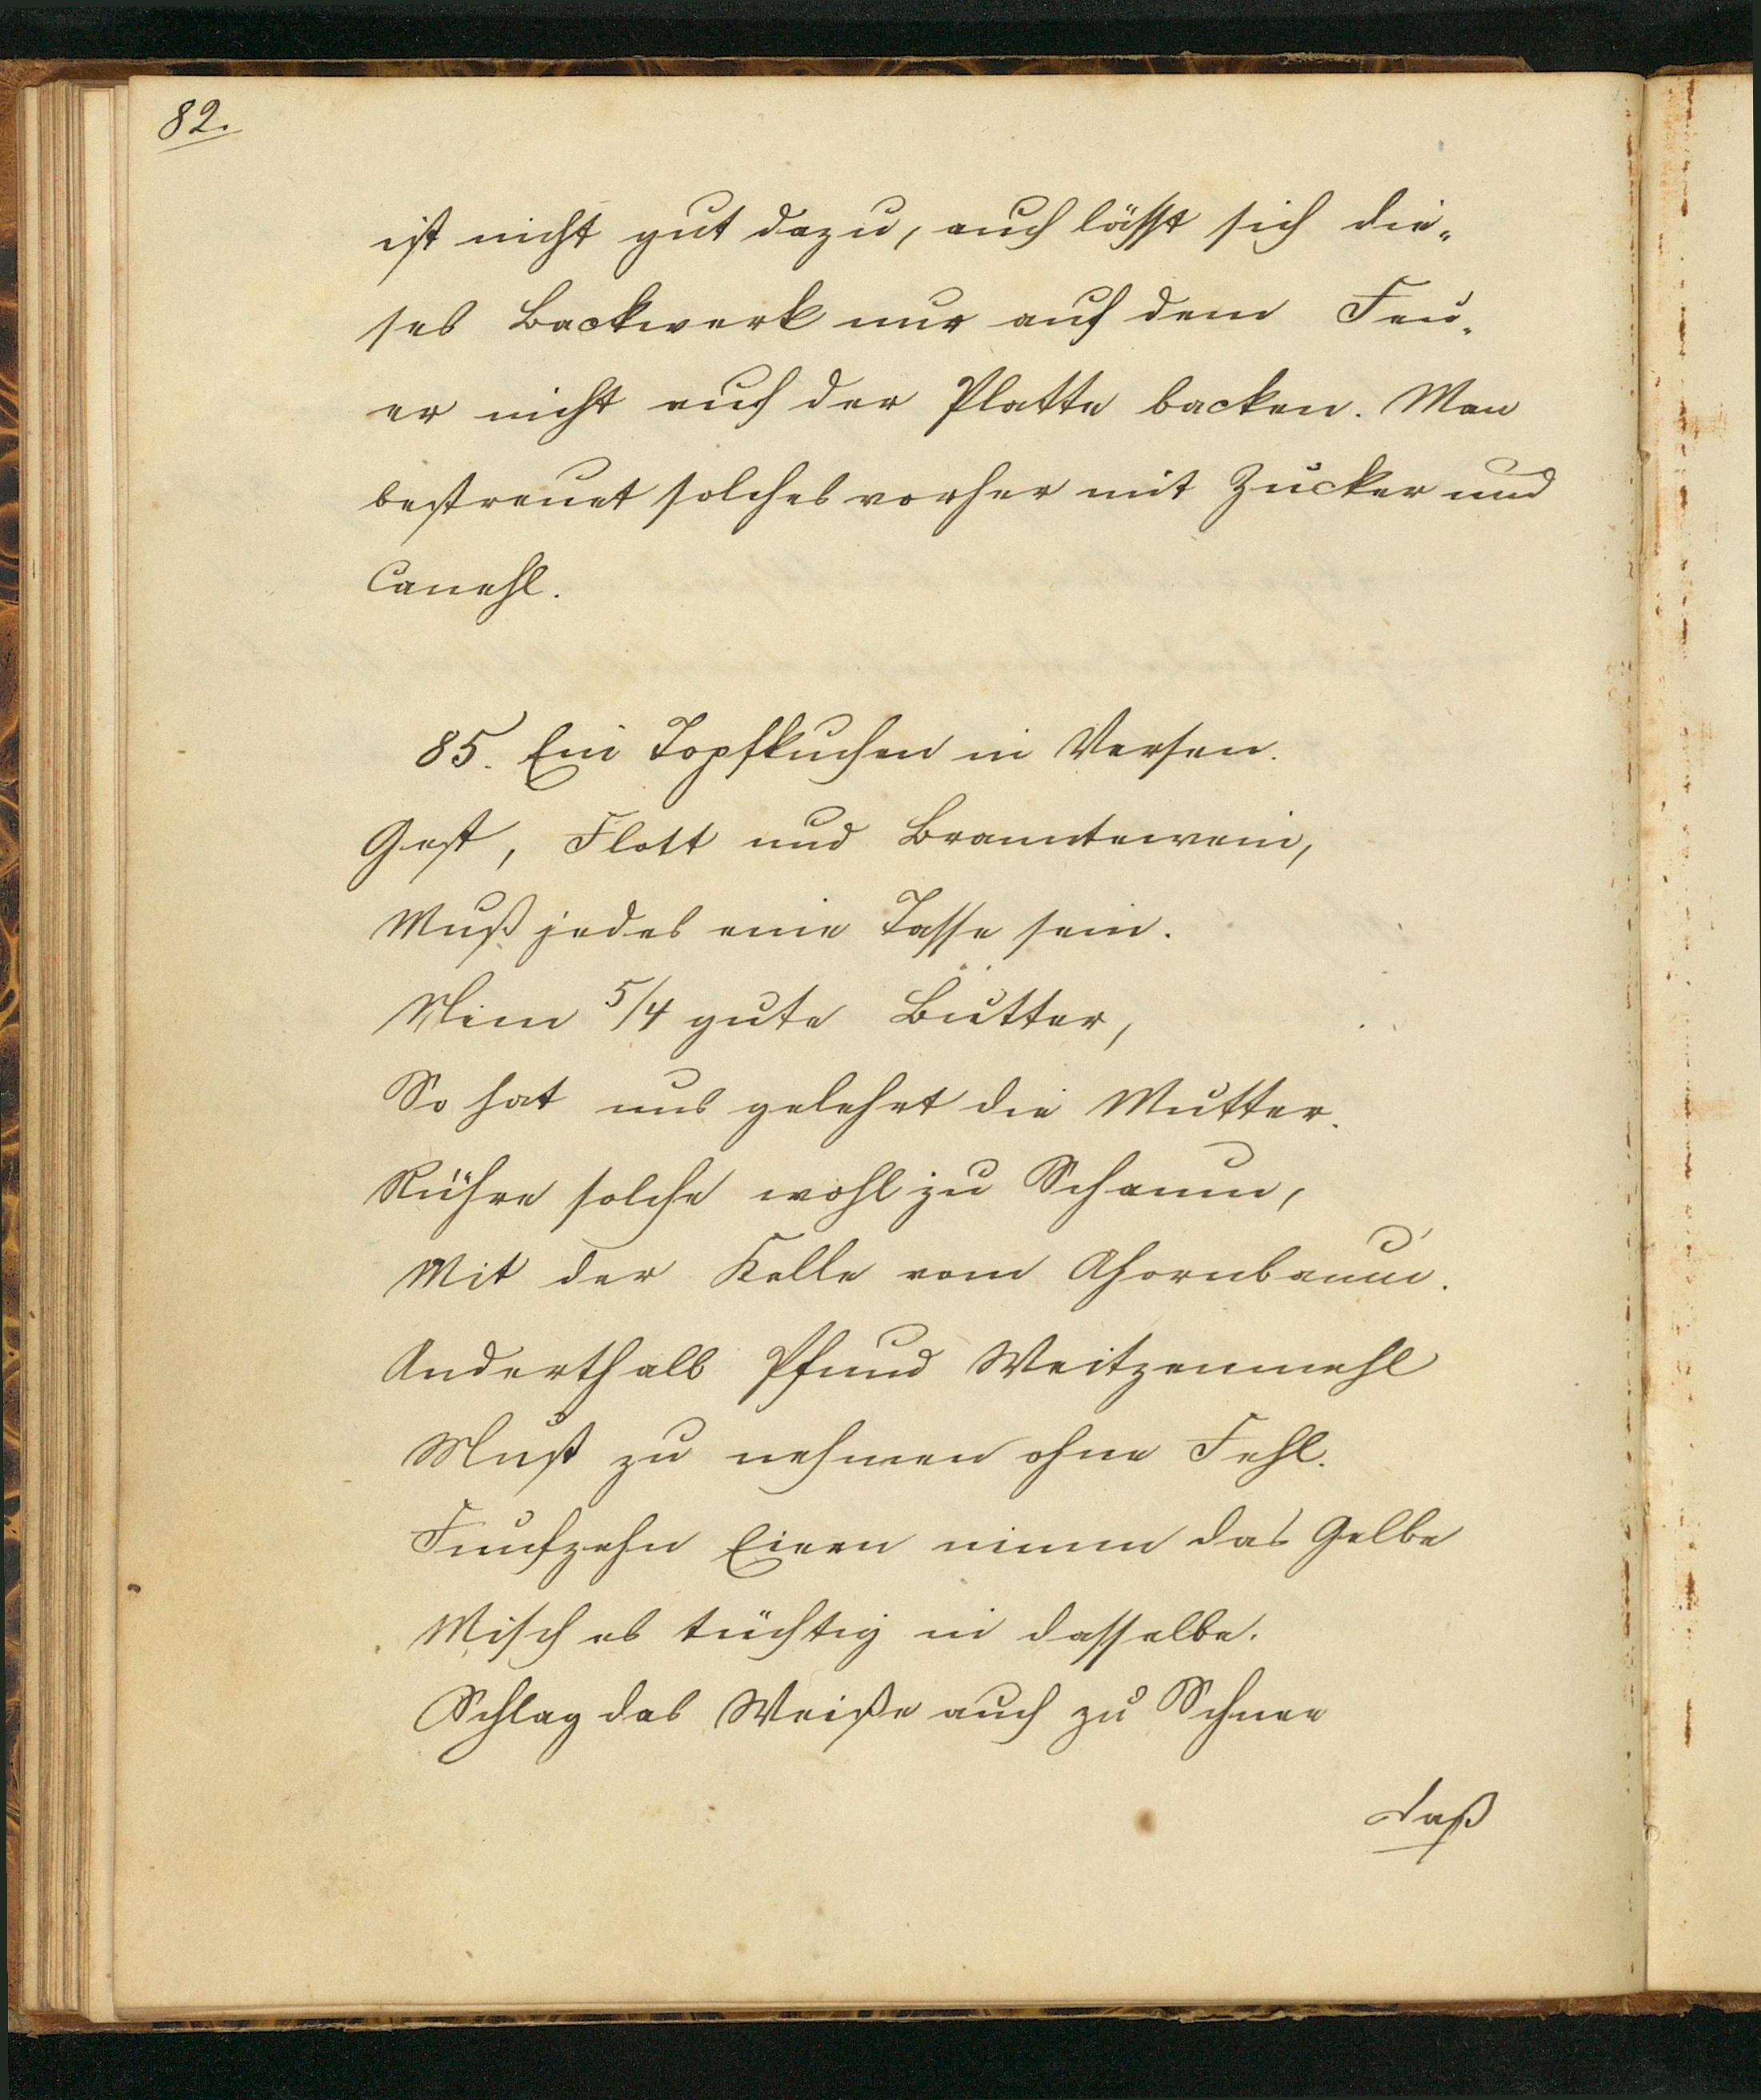 82.
ist nicht gut dazu, auch läßt sich die-
ses Backwerk nur auf dem Feu-
er nicht auf der Platte backen. Man
bestreuet solches vorher mit Zucker und
Canehl.
85. Ein Topfkuchen in Versen.
Gest, Flott und Branntewein,
Muß jedes eine Tasse sein.
Nim 5/4 gute Butter,
So hat uns gelehrt die Mutter.
Rühre solche wohl zu Schaum,
Mit der Kelle vom Ahornbaum.
Anderthalb Pfund Weitzenmehl
Must zu nehmen ohne Fehl.
Funfzehn Eiern nimm das Gelbe
Misch es tüchtig in dasselbe.
Schlag das Weiße auch zu Schnee
daß